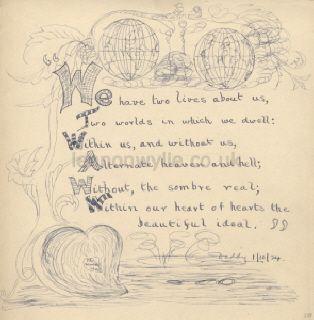 "We have two lives about us,
Two worlds in which we dwell:
Within us, and without us,
Alternate heaven and hell;
Without, the sombre real;
Within our heart of hearts the
beautiful ideal."
Daddy 1/10/24.